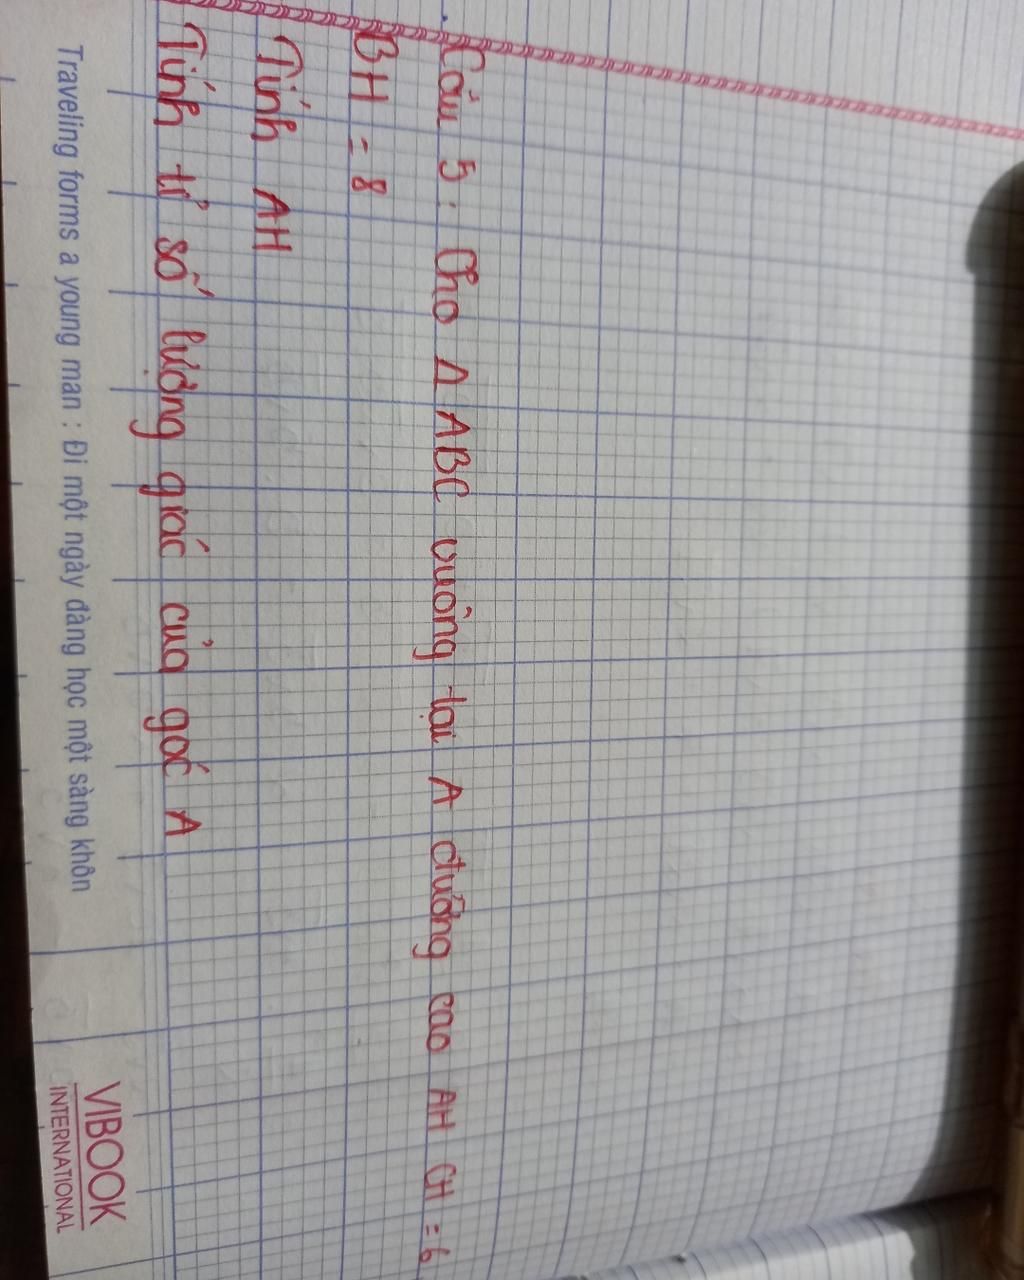 Câu 5: Cho Δ ABC vuông tại A đường cao AH CH = 6
BH = 8
Tính AH
Tính tỉ số lượng giác của góc A
Traveling forms a young man : Đi một ngày đàng học một sàng khôn
VIBOOK
INTERNATIONAL